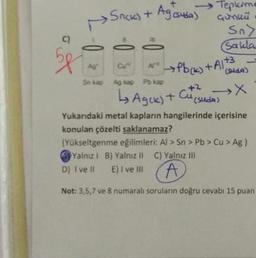 → Sn(k) + Ag⁺(suda) → Tepkime
Sn>
C)
I II III
5p
Ag⁺ Cu⁺² Al⁺³
→ Pb(k) + Al⁺³(suda)
Sn kap Ag kap Pb kap
↳ Ag(k) + Cu⁺²(suda) → X
Yukarıdaki metal kapların hangilerinde içerisine
konulan çözelti saklanamaz?
(Yükseltgenme eğilimleri: Al > Sn > Pb > Cu > Ag )
Yalnız I B) Yalnız II C) Yalnız III
D) I ve II E) I ve III A
Not: 3,5,7 ve 8 numaralı soruların doğru cevabı 15 puan